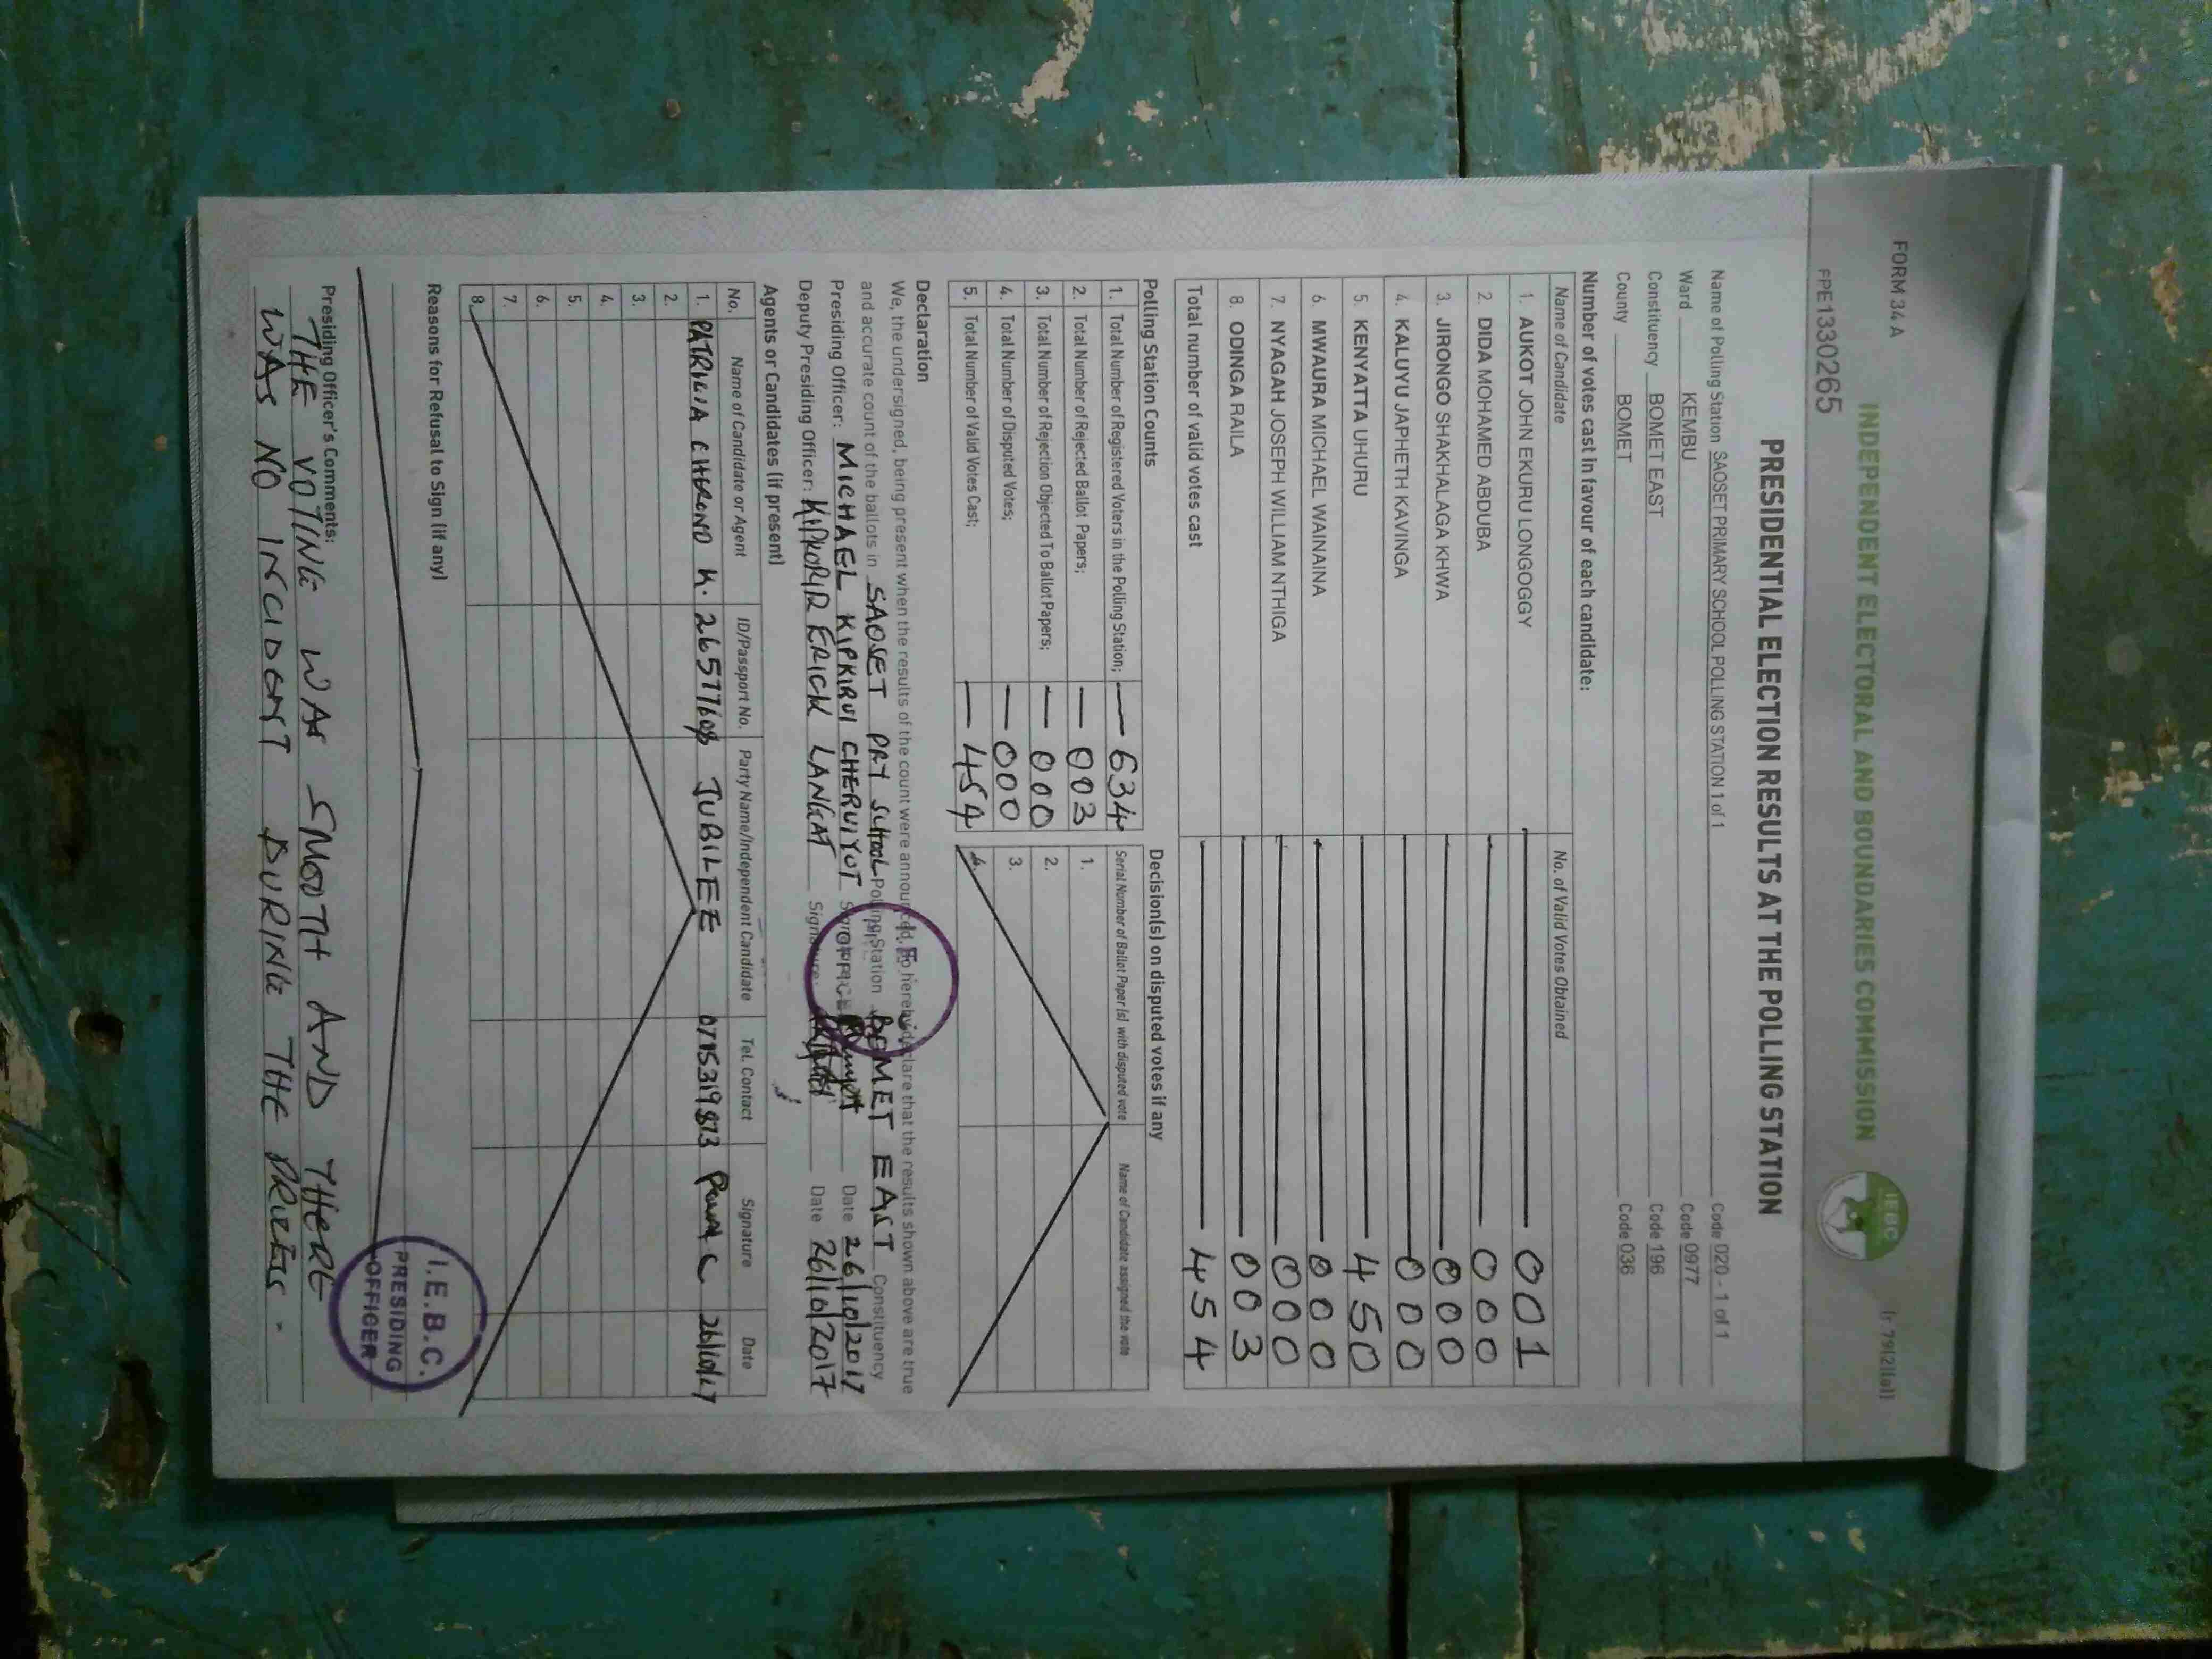 FORM 34 A
Ir 79(2)(a)
FPE1330265
INDEPENDENT ELECTORAL AND BOUNDARIES COMMISSION
IEBC
PRESIDENTIAL ELECTION RESULTS AT THE POLLING STATION
Name of Polling Station SAOSET PRIMARY SCHOOL POLLING STATION 1 of 1 Code 020 - 1 of 1
Ward KEMBU Code 0977
Constituency BOMET EAST Code 196
County BOMET Code 036
Number of votes cast in favour of each candidate:
Name of Candidate No. of Valid Votes Obtained
1. AUKOT JOHN EKURU LONGOGGY 001
2. DIDA MOHAMED ABDUBA 000
3. JIRONGO SHAKHALAGA KHWA 000
4. KALUYU JAPHETH KAVINGA 000
5. KENYATTA UHURU 450
6. MWAURA MICHAEL WAINAINA 000
7. NYAGAH JOSEPH WILLIAM NTHIGA 000
8. ODINGA RAILA 003
Total number of valid votes cast 454
Polling Station Counts
1. Total Number of Registered Voters in the Polling Station; 634
2. Total Number of Rejected Ballot Papers; 003
3. Total Number of Rejection Objected To Ballot Papers; 000
4. Total Number of Disputed Votes; 000
5. Total Number of Valid Votes Cast; 454
Decision(s) on disputed votes if any
Serial Number of Ballot Paper(s) with disputed vote Name of Candidate assigned the vote
1.
2.
3.
4.
Declaration
We, the undersigned, being present when the results of the count were announced, do hereby declare that the results shown above are true
and accurate count of the ballots in SAOSET PRY SCHOOL Polling Station BOMET EAST Constituency
Presiding Officer: MICHAEL KIPKIRUI CHERUIYOT Signature: Date 26/10/2017
Deputy Presiding Officer: KIPKORIR ERICK LANGAT Signature: Date 26/10/2017
Agents or Candidates (if present)
No. Name of Candidate or Agent ID/Passport No. Party Name/Independent Candidate Tel. Contact Signature Date
1. PATRICIA CHERONO K. JUBILEE 26/10/17
2.
3.
4.
5.
6.
7.
8.
Reasons for Refusal to Sign (if any)
Presiding Officer's Comments:
THE VOTING WAS SMOOTH AND THERE
WAS NO INCIDENT DURING THE
I.E.B.C.
PRESIDING
OFFICER